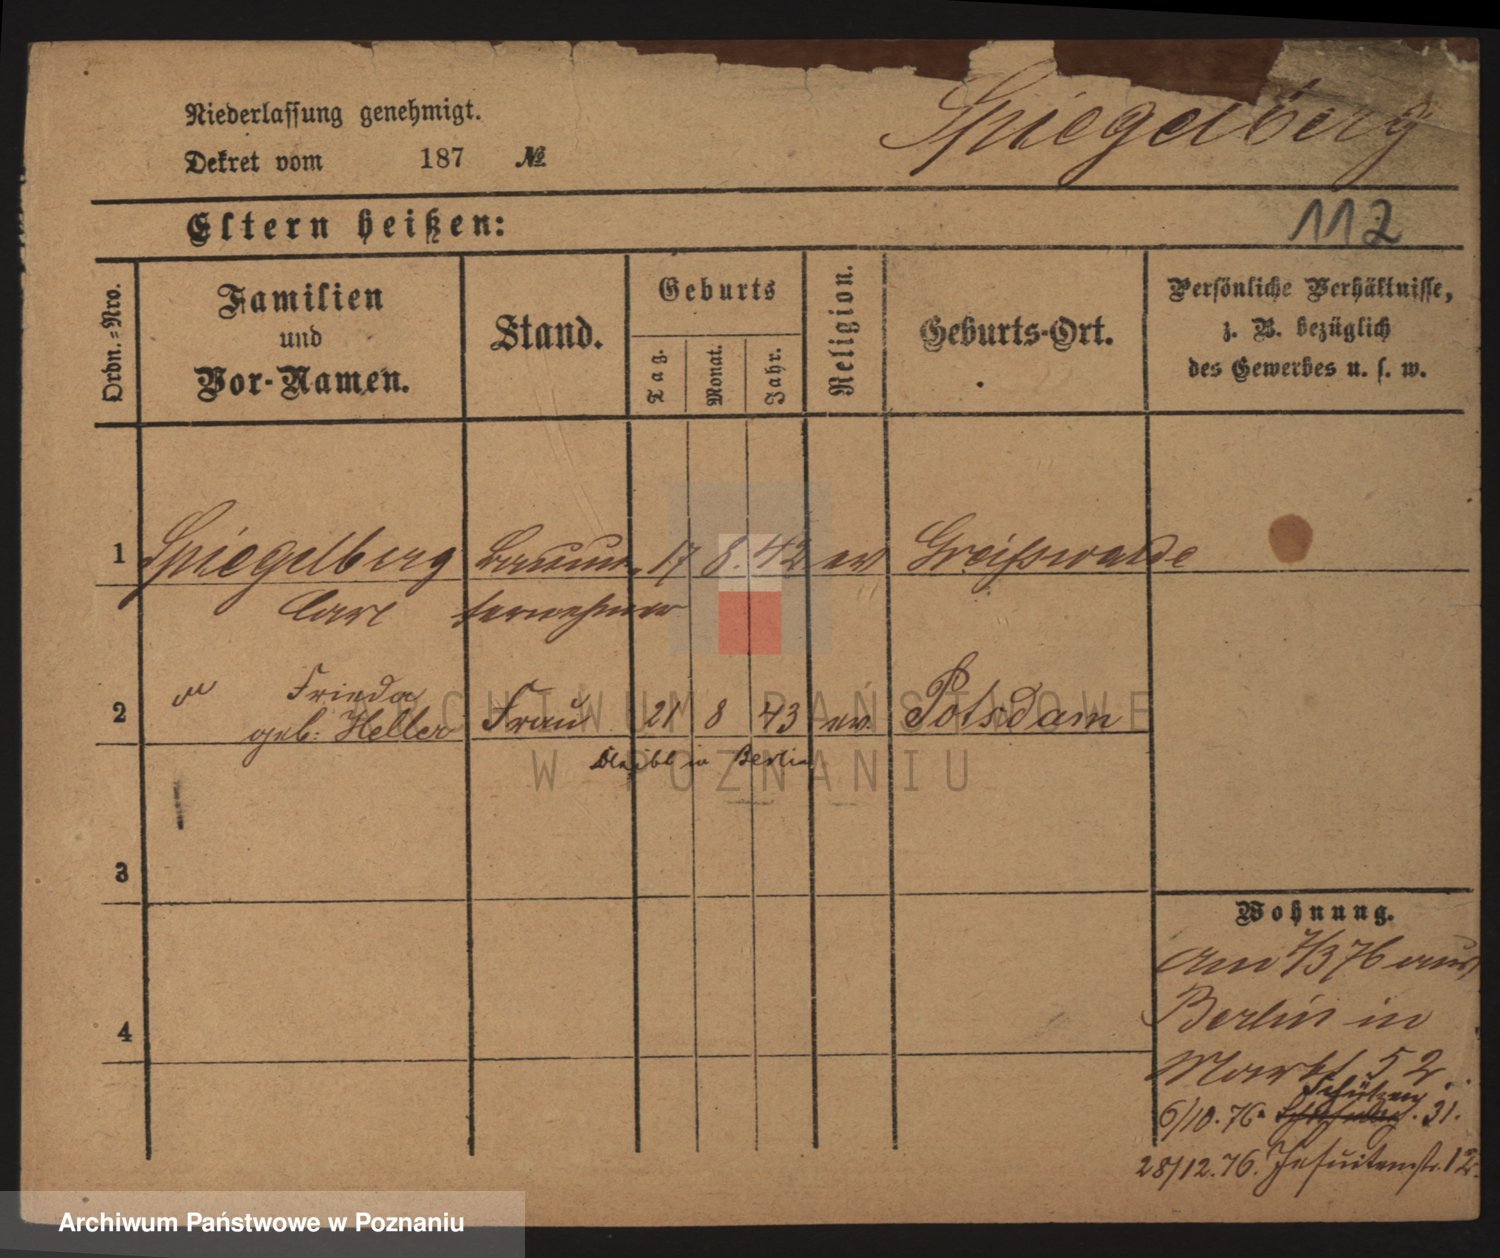 Niederlassung genehmigt.
Spiegelberg
Dekret vom 187 №
Eltern heißen:
112
Ordn.=Nro.
Familien
und
Vor-Namen.
Stand.
Geburts
Tag.
Monat.
Jahr.
Religion.
Geburts-Ort.
Persönliche Verhältnisse,
z. B. bezüglich
des Gewerbes u. s. w.
1 Spiegelberg 17 8. 42 ev Greifswalde
Carl
2 " Frieda
geb: Heller Frau 21 8 43 ev. Potsdam
bleibt in Berlin
3
4
Wohnung.
Am 7/3 76 aus
Berlin in
Markt 52.
Schützen
6/10. 76. 31.
28/12. 76. Jesuitenstr. 12.
ARCHIWUM PAŃSTWOWE
W POZNANIU
Archiwum Państwowe w Poznaniu